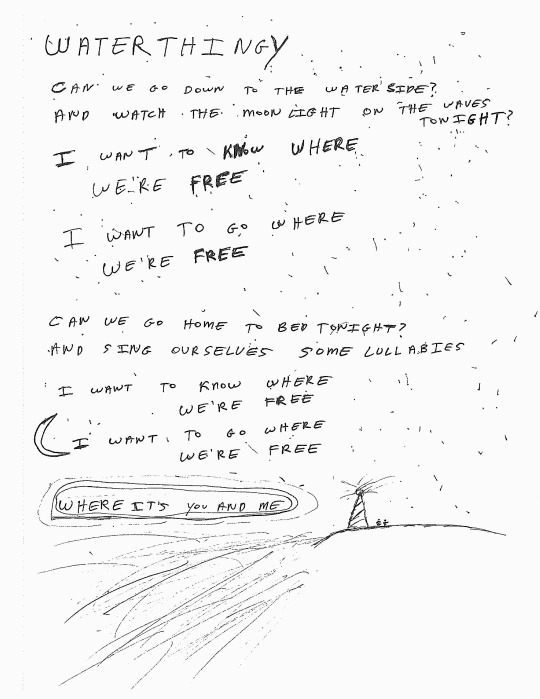 WATERTHINGY
CAN WE GO DOWN TO THE WATERSIDE?
AND WATCH THE MOONLIGHT ON THE WAVES
TONIGHT?
I WANT TO KNOW WHERE
WE'RE FREE
I WANT TO GO WHERE
WE'RE FREE
CAN WE GO HOME TO BED TONIGHT?
AND SING OURSELVES SOME LULLABIES
I WANT TO KNOW WHERE
WE'RE FREE
I WANT TO GO WHERE
WE'RE FREE
WHERE IT'S YOU AND ME